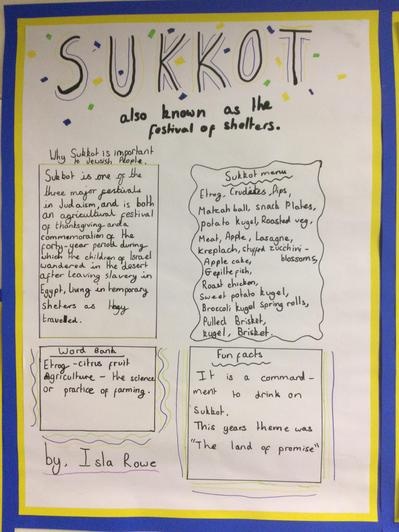 SUKKOT
also known as the
festival of shelters.
Why Sukkot is important
to Jewish People.
Sukkot is one of the
three major festivals
in Judaism, and is both
an agricultural festival
of thanksgiving and a
commemoration of the
forty-year period during
which the children of Israel
wandered in the desert
after leaving slavery in
Egypt, living in temporary
shelters as they
travelled.
Sukkot menu
Etrog, Crudités, Dips,
Matzah ball, snack Plates,
potato kugel, Roasted veg,
Meat, Apple, Lasagne,
kreplach, stuffed zucchini-
blossoms,
Apple cake,
Gefilte fish,
Roast chicken,
Sweet potato kugel,
Broccoli kugel spring rolls,
Pulled Brisket,
kugel, Brisket.
Word Bank
Etrog - citrus fruit
Agriculture - the science
or practice of farming.
Fun facts
It is a command-
ment to drink on
Sukkot.
This years theme was
"The land of promise"
by, Isla Rowe